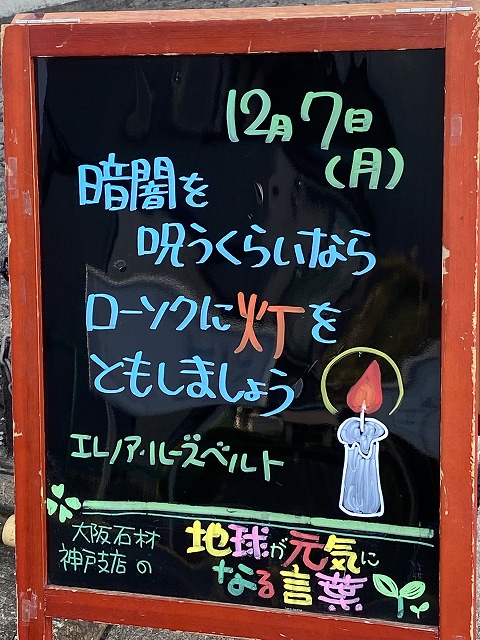 12月7日
(月)
暗闇を
呪うくらいなら
ローソクに灯を
ともしましょう
エレノア・ルーズベルト
大阪石材
神戸支店の
地球が元気に
なる言葉